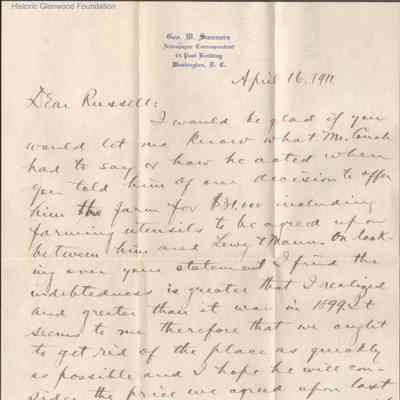 Historic Glenwood Foundation
Geo. W. Summers
Newspaper Correspondent
Post Building
Washington, D. C.
April 16, 1911
Dear Russell:
I would be glad if you
would let me know what Mr.
had to say or how he acted when
you told him of our decision to offer
him the farm for $31,000 including
farming utensils to be agreed upon
between him and Lewis & On look-
ing over your statement I find the
indebtedness is greater than I realized
and greater than it was in 1899. It
seems to me therefore that we ought
to get rid of the place as quickly
as possible and I hope he will con-
sider the price we agreed upon last